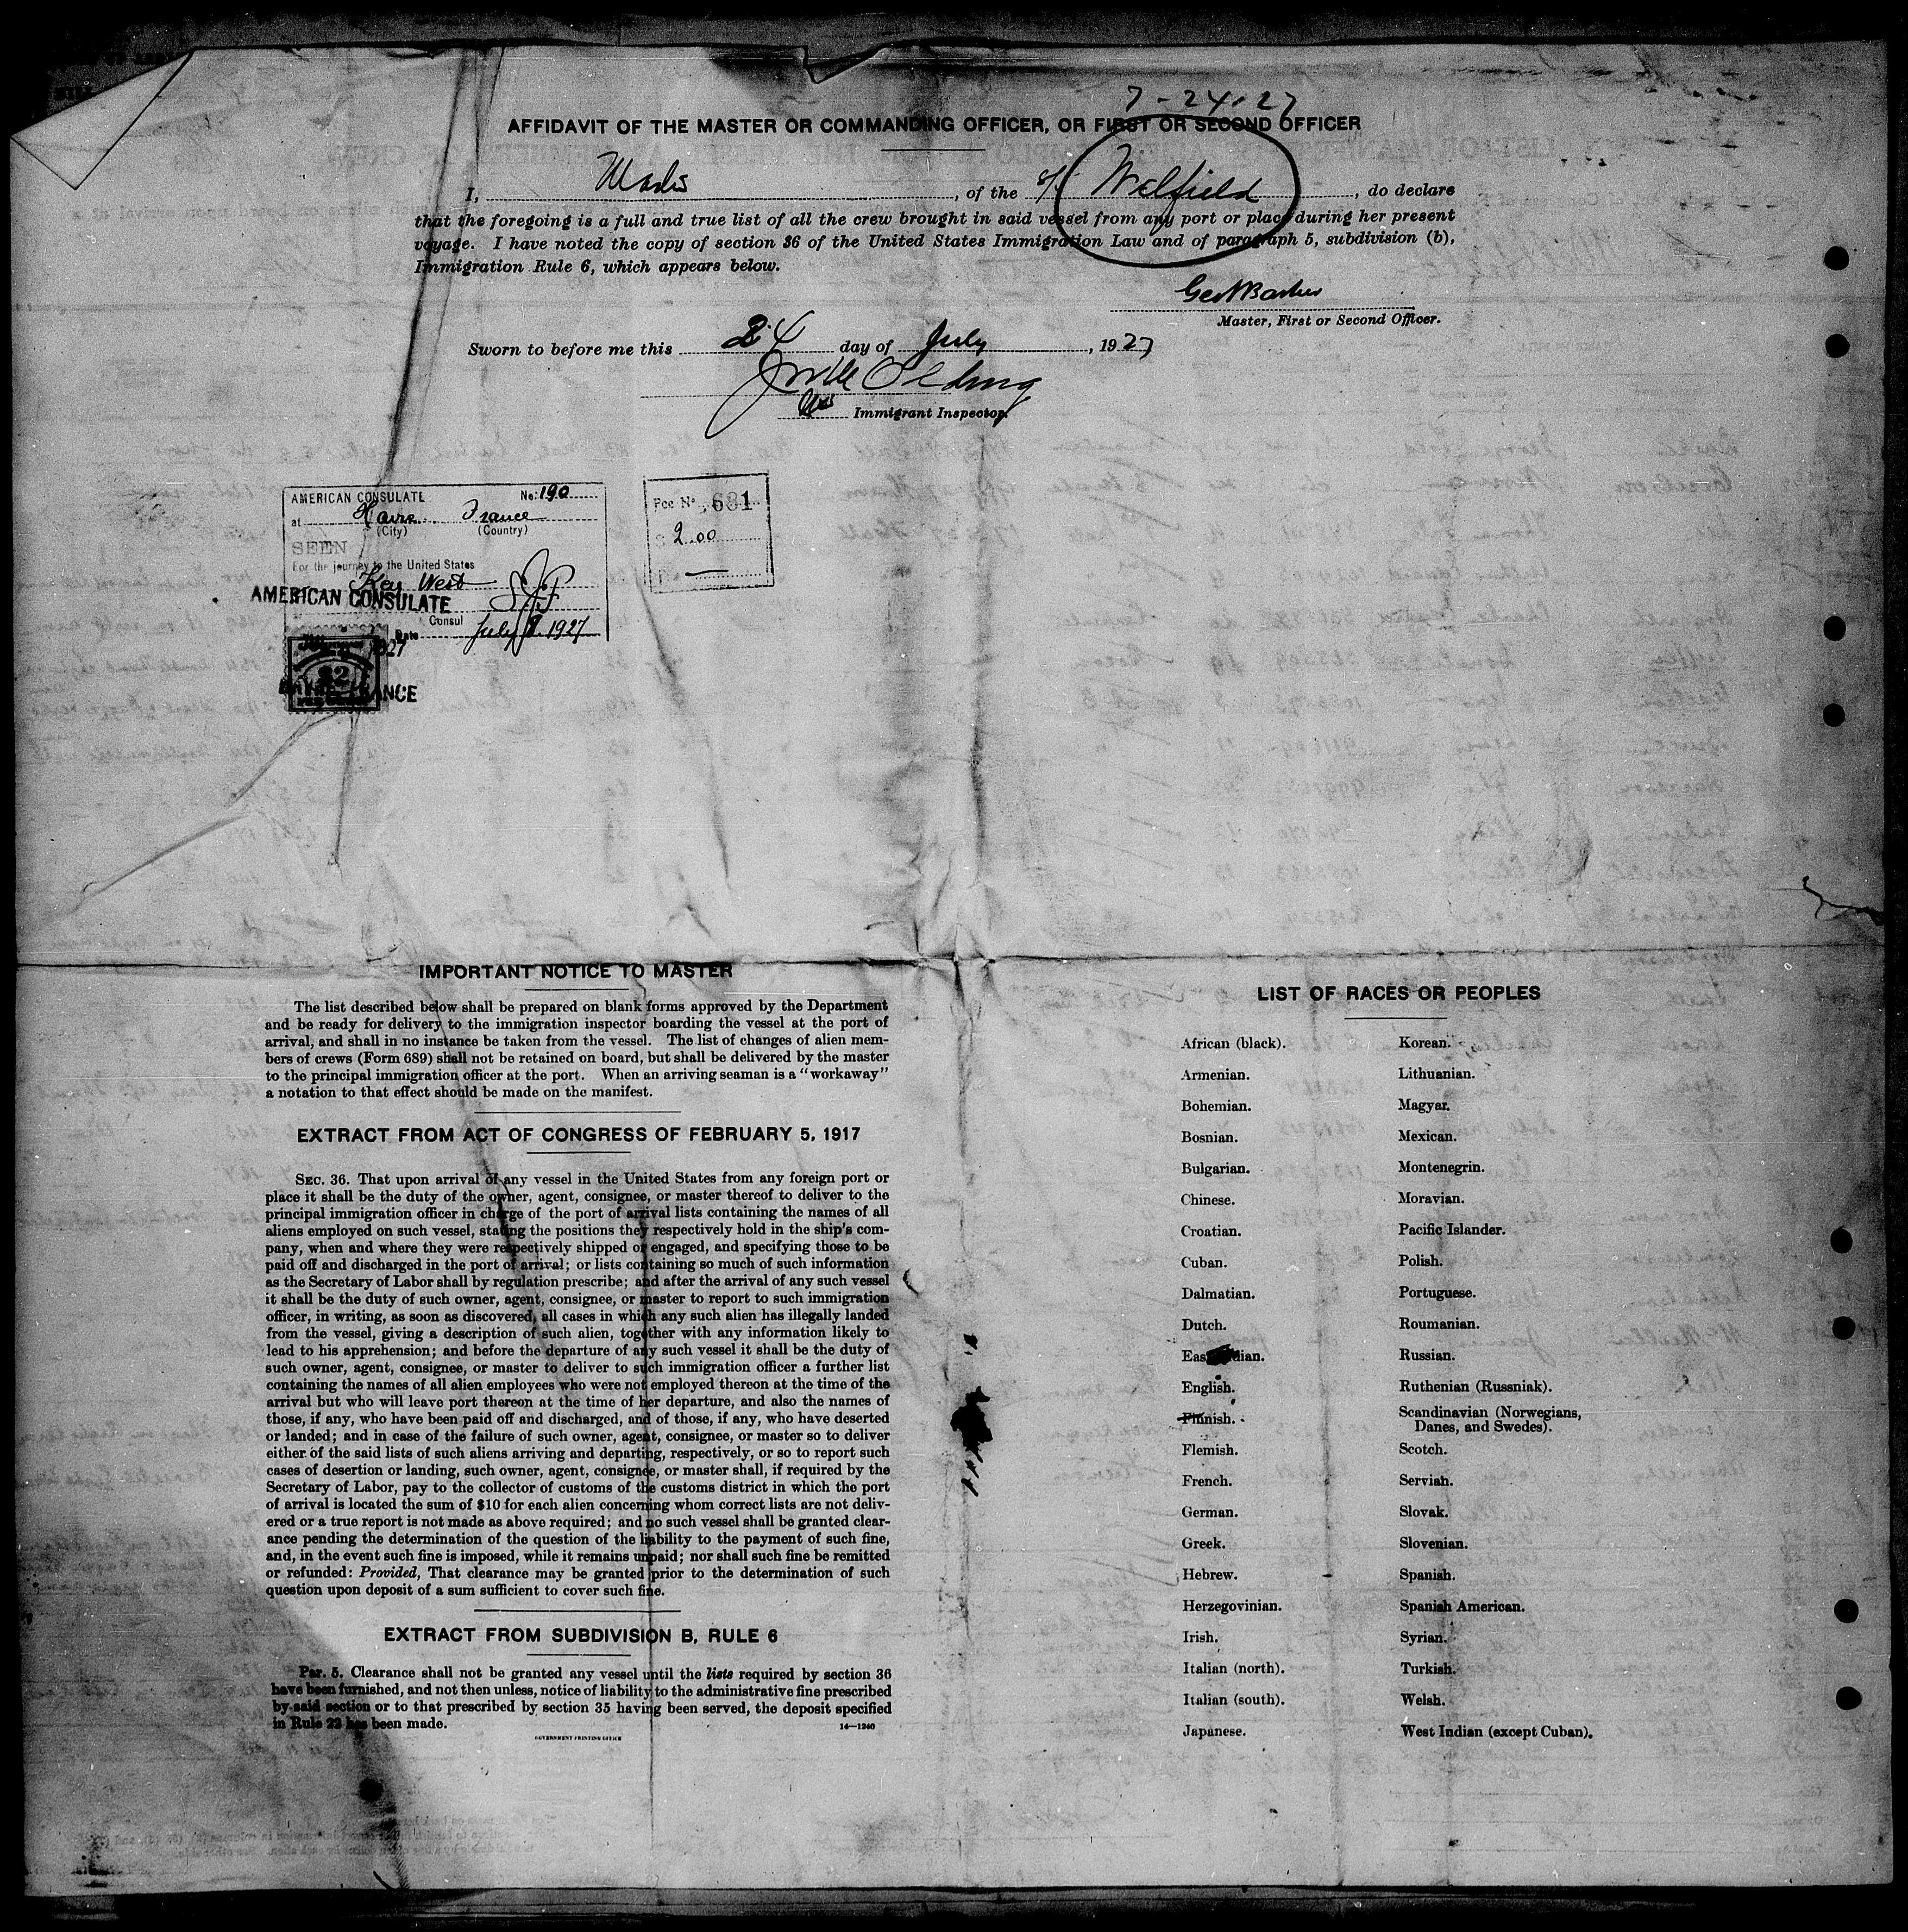 7-24-27
AFFIDAVIT OF THE MASTER OR COMMANDING OFFICER, OR FIRST OR SECOND OFFICER
I, , of the S/S Welfield, do declare
that the foregoing is a full and true list of all the crew brought in said vessel from any port or place during her present
voyage. I have noted the copy of section 36 of the United States Immigration Law and of paragraph 5, subdivision (b),
Immigration Rule 6, which appears below.
Master, First or Second Officer.
Sworn to before me this 24 day of July, 1927
Immigrant Inspector.
AMERICAN CONSULATE No: 190
at Havre France
(City) (Country)
SEEN
For the journey to the United States
Key West
AMERICAN CONSULATE
Consul
Date July 8. 1927
1927
$2
HAVRE, FRANCE
Fee No 681
$ 2.00
IMPORTANT NOTICE TO MASTER
The list described below shall be prepared on blank forms approved by the Department
and be ready for delivery to the immigration inspector boarding the vessel at the port of
arrival, and shall in no instance be taken from the vessel. The list of changes of alien mem-
bers of crews (Form 689) shall not be retained on board, but shall be delivered by the master
to the principal immigration officer at the port. When an arriving seaman is a "workaway"
a notation to that effect should be made on the manifest.
EXTRACT FROM ACT OF CONGRESS OF FEBRUARY 5, 1917
SEC. 36. That upon arrival of any vessel in the United States from any foreign port or
place it shall be the duty of the owner, agent, consignee, or master thereof to deliver to the
principal immigration officer in charge of the port of arrival lists containing the names of all
aliens employed on such vessel, stating the positions they respectively hold in the ship's com-
pany, when and where they were respectively shipped or engaged, and specifying those to be
paid off and discharged in the port of arrival; or lists containing so much of such information
as the Secretary of Labor shall by regulation prescribe; and after the arrival of any such vessel
it shall be the duty of such owner, agent, consignee, or master to report to such immigration
officer, in writing, as soon as discovered, all cases in which any such alien has illegally landed
from the vessel, giving a description of such alien, together with any information likely to
lead to his apprehension; and before the departure of any such vessel it shall be the duty of
such owner, agent, consignee, or master to deliver to such immigration officer a further list
containing the names of all alien employees who were not employed thereon at the time of the
arrival but who will leave port thereon at the time of her departure, and also the names of
those, if any, who have been paid off and discharged, and of those, if any, who have deserted
or landed; and in case of the failure of such owner, agent, consignee, or master so to deliver
either of the said lists of such aliens arriving and departing, respectively, or so to report such
cases of desertion or landing, such owner, agent, consignee, or master shall, if required by the
Secretary of Labor, pay to the collector of customs of the customs district in which the port
of arrival is located the sum of $10 for each alien concerning whom correct lists are not deliv-
ered or a true report is not made as above required; and no such vessel shall be granted clear-
ance pending the determination of the question of the liability to the payment of such fine,
and, in the event such fine is imposed, while it remains unpaid; nor shall such fine be remitted
or refunded: Provided, That clearance may be granted prior to the determination of such
question upon deposit of a sum sufficient to cover such fine.
EXTRACT FROM SUBDIVISION B, RULE 6
Par. 5. Clearance shall not be granted any vessel until the lists required by section 36
have been furnished, and not then unless, notice of liability to the administrative fine prescribed
by said section or to that prescribed by section 35 having been served, the deposit specified
in Rule 22 has been made.
14—1240
GOVERNMENT PRINTING OFFICE
LIST OF RACES OR PEOPLES
African (black).
Armenian.
Bohemian.
Bosnian.
Bulgarian.
Chinese.
Croatian.
Cuban.
Dalmatian.
Dutch.
East Indian.
English.
Finnish.
Flemish.
French.
German.
Greek.
Hebrew.
Herzegovinian.
Irish.
Italian (north).
Italian (south).
Japanese.
Korean.
Lithuanian.
Magyar.
Mexican.
Montenegrin.
Moravian.
Pacific Islander.
Polish.
Portuguese.
Roumanian.
Russian.
Ruthenian (Russniak).
Scandinavian (Norwegians,
Danes, and Swedes).
Scotch.
Servian.
Slovak.
Slovenian.
Spanish.
Spanish American.
Syrian.
Turkish.
Welsh.
West Indian (except Cuban).